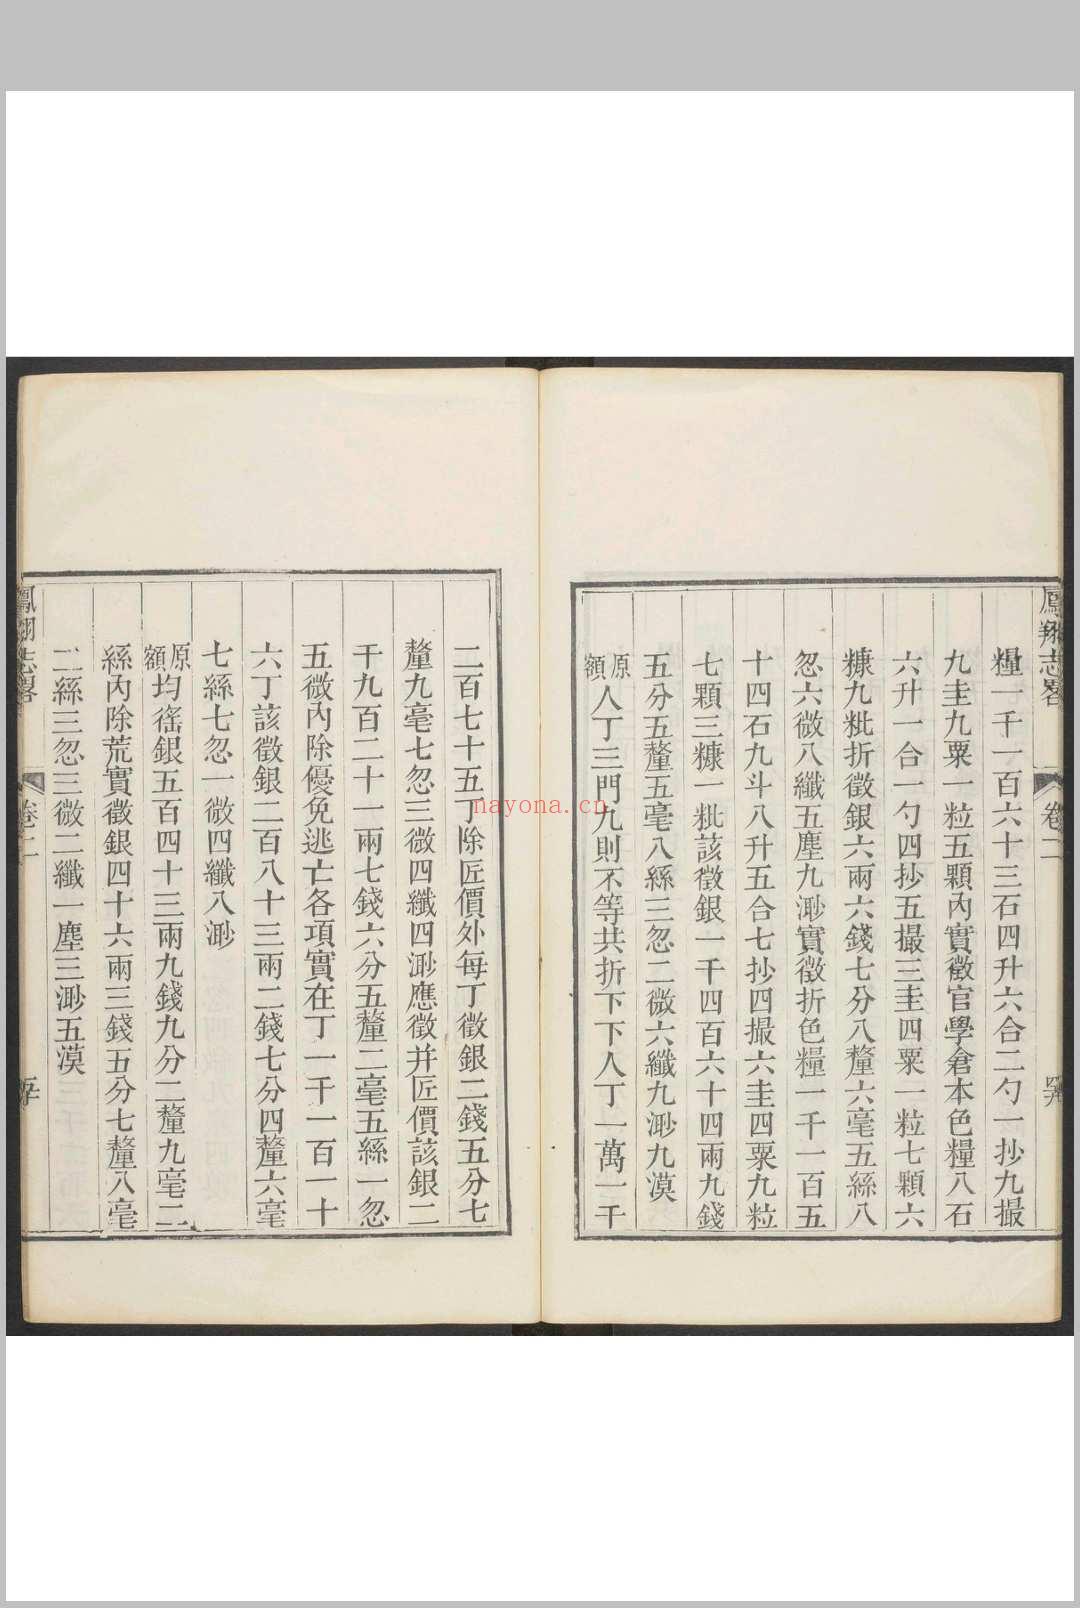 鳳翔志畧 卷二
糧一千一百六十三石四升六合二勺一抄九撮
九圭九粟一粒五顆內實徵官學倉本色糧八石
六升一合一勺四抄五撮三圭四粟一粒七顆六
糠九粃折徵銀六兩六錢七分八釐六毫五絲八
忽六微八纖五塵九渺實徵折色糧一千一百五
十四石九斗八升五合七抄四撮六圭四粟九粒
七顆三糠一粃該徵銀一千四百六十四兩九錢
五分五釐五毫八絲三忽二微六纖九渺九漠
原額人丁三門九則不等共折下下人丁一萬一千
二百七十五丁除匠價外每丁徵銀二錢五分七
釐九毫七忽三微四纖四渺應徵并匠價該銀二
千九百二十一兩七錢六分五釐二毫五絲一忽
五微內除優免逃亡各項實在丁一千一百一十
六丁該徵銀二百八十三兩二錢七分四釐六毫
七絲七忽一微四纖八渺
原額均徭銀五百四十三兩九錢九分二釐九毫二
絲內除荒實徵銀四十六兩三錢五分七釐八毫
二絲三忽三微二纖一塵三渺五漠
鳳翔志畧 卷二
nayona.cn